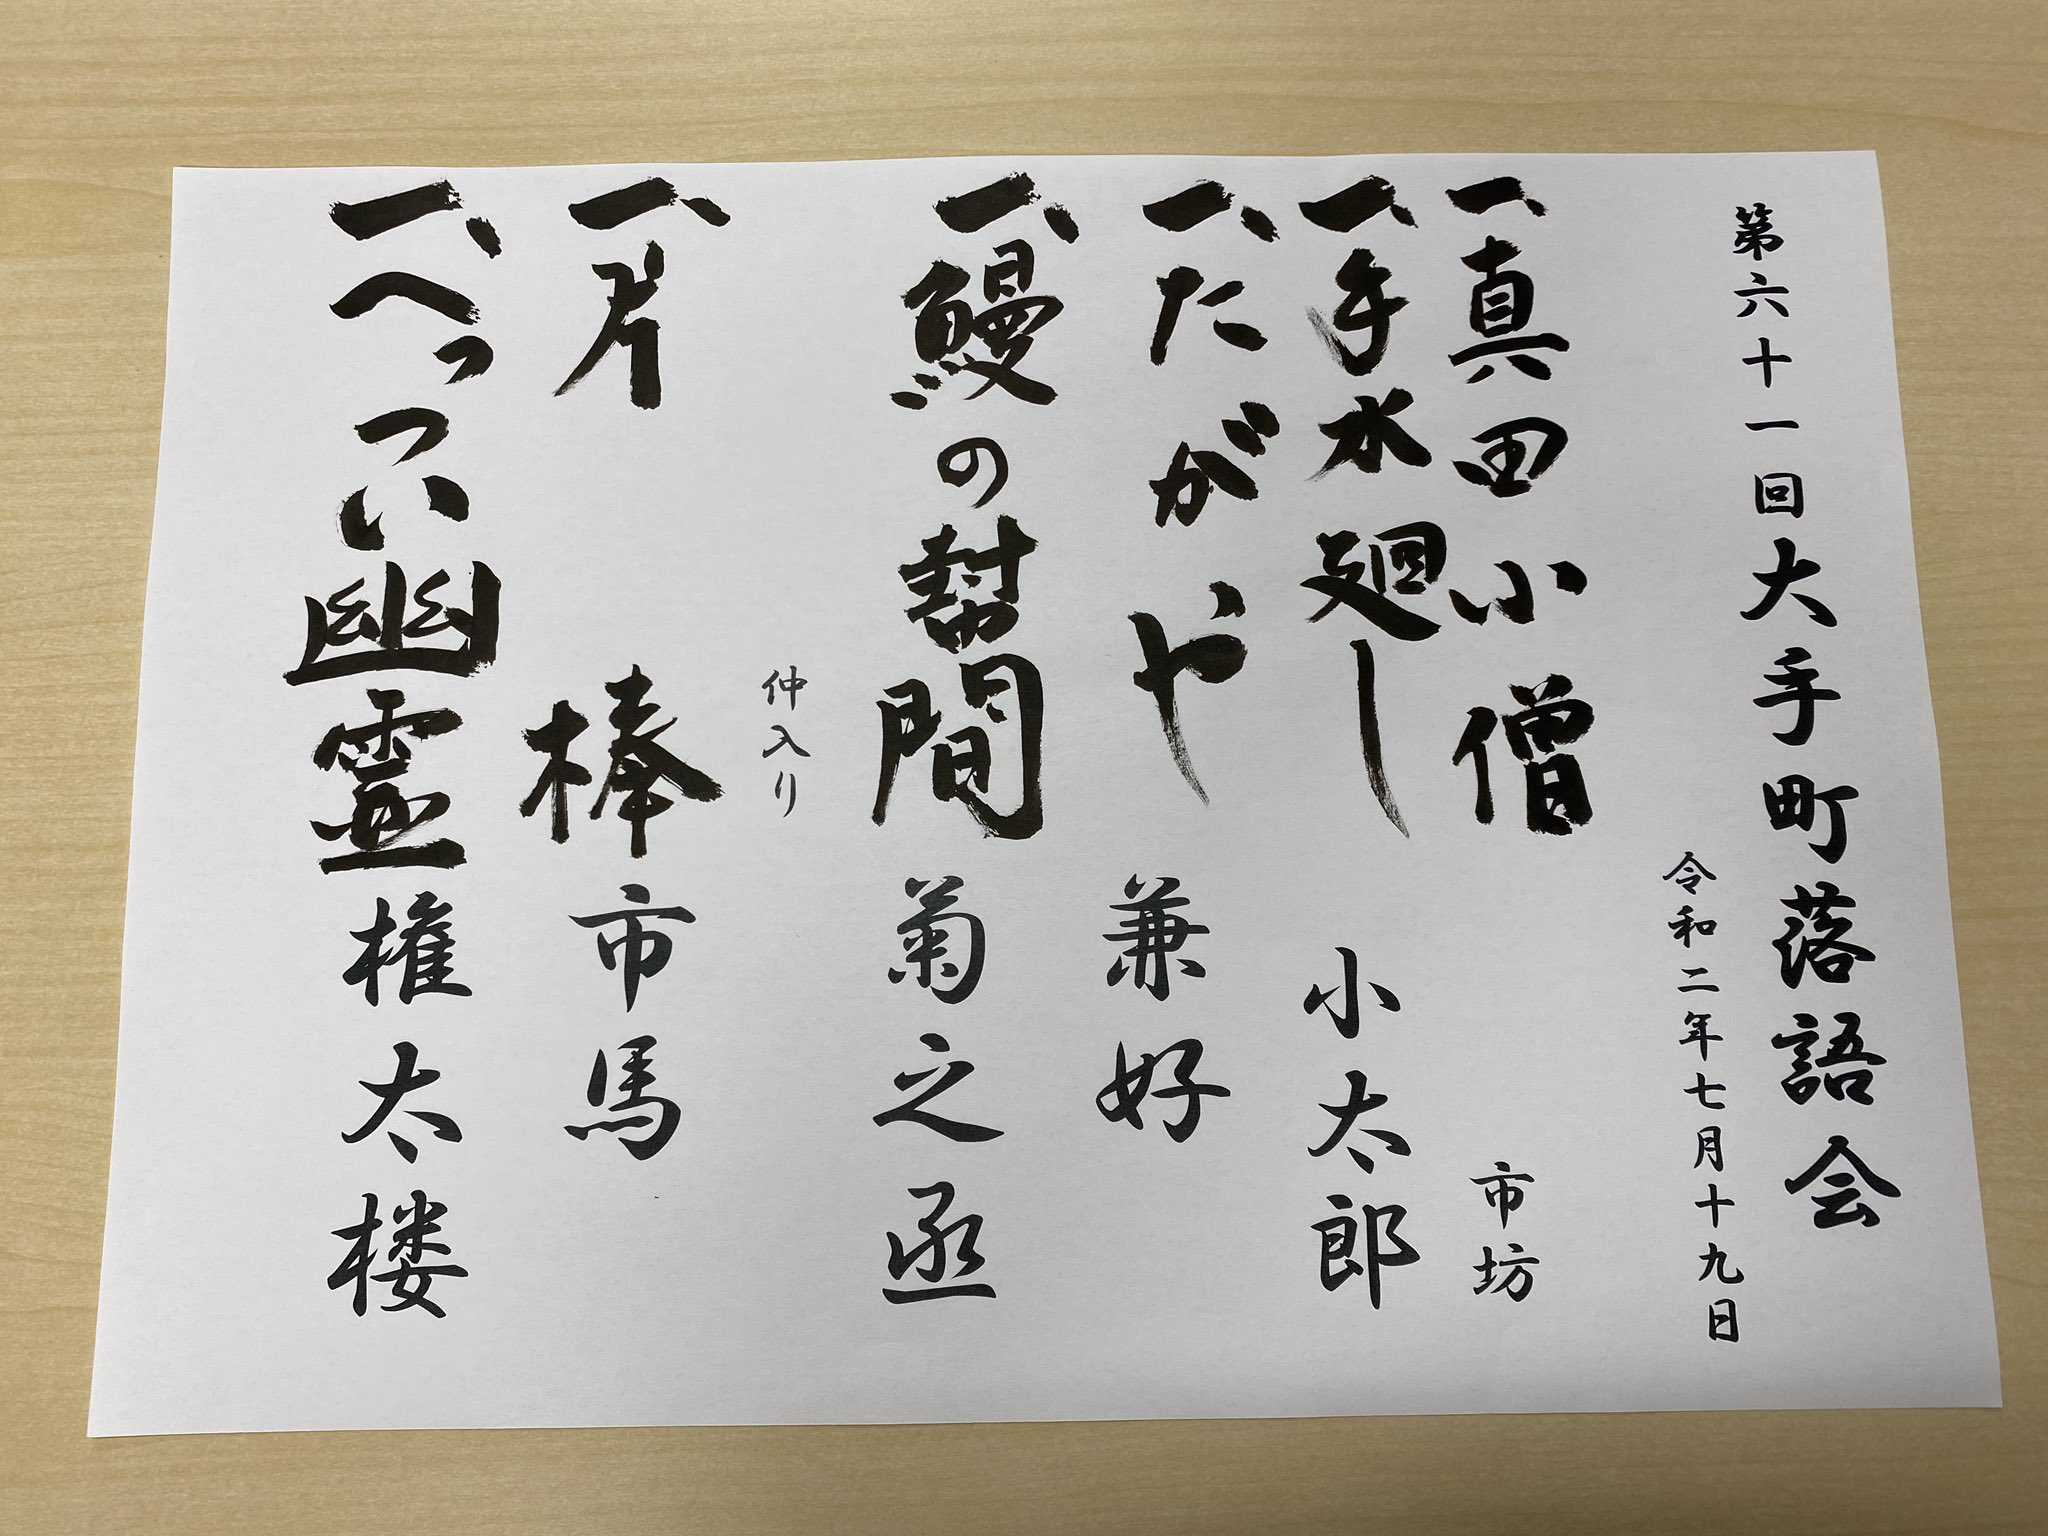 第六十一回大手町落語会
令和二年七月十九日
一、真田小僧 市坊
一、手水廻し 小太郎
一、たがや 兼好
一、鰻の幇間 菊之丞
仲入り
一、片棒 市馬
一、へっつい幽霊 権太楼